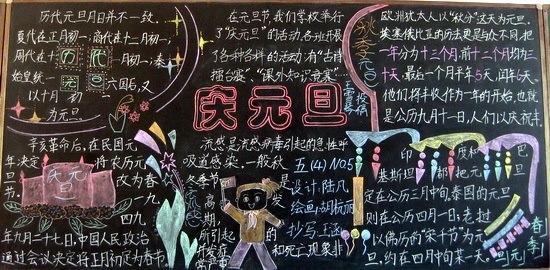 历代元旦月日并不一致,
夏代在正月初一;商代在十二月初一;
周代在十一月初一;秦
始皇统一六国后,又
以十月初一
为元旦。
历代
元旦
在元旦节,我们学校举行
了“庆元旦”的活动,各班开展
了各种各样的活动:有“古诗
擂台歌”、“课外知识竞赛”……
庆元旦
秋季元旦
欧洲犹太人以“秋分”这天为元旦。
一年分为十三个月,前十二个月均为三
十天,最后一个月平年5天,闰年6天。
他们将丰收作为一年的开始,也就
是公历九月十一日,人们以庆祝丰
辛亥革命后,在民国元
年决定
将农历元
旦
改为春
节。
一九
四九
年九月二十七日,中国人民政治
协商会议决定将正月初一定为春节。
庆元
旦
流感是流感病毒引起的急性呼
吸道感染,一般秋
冬季节是
高发
期,
所引起
的
和死亡现象非
五(4) No5
设计:陆凡
抄写:王
印度和巴
基斯坦都把元旦
定在公历三月中旬,泰国的元旦
则在公历四月一日;老挝
以佛历的“宋干节”为元
旦,约在四月中旬某一天。
春季
元旦